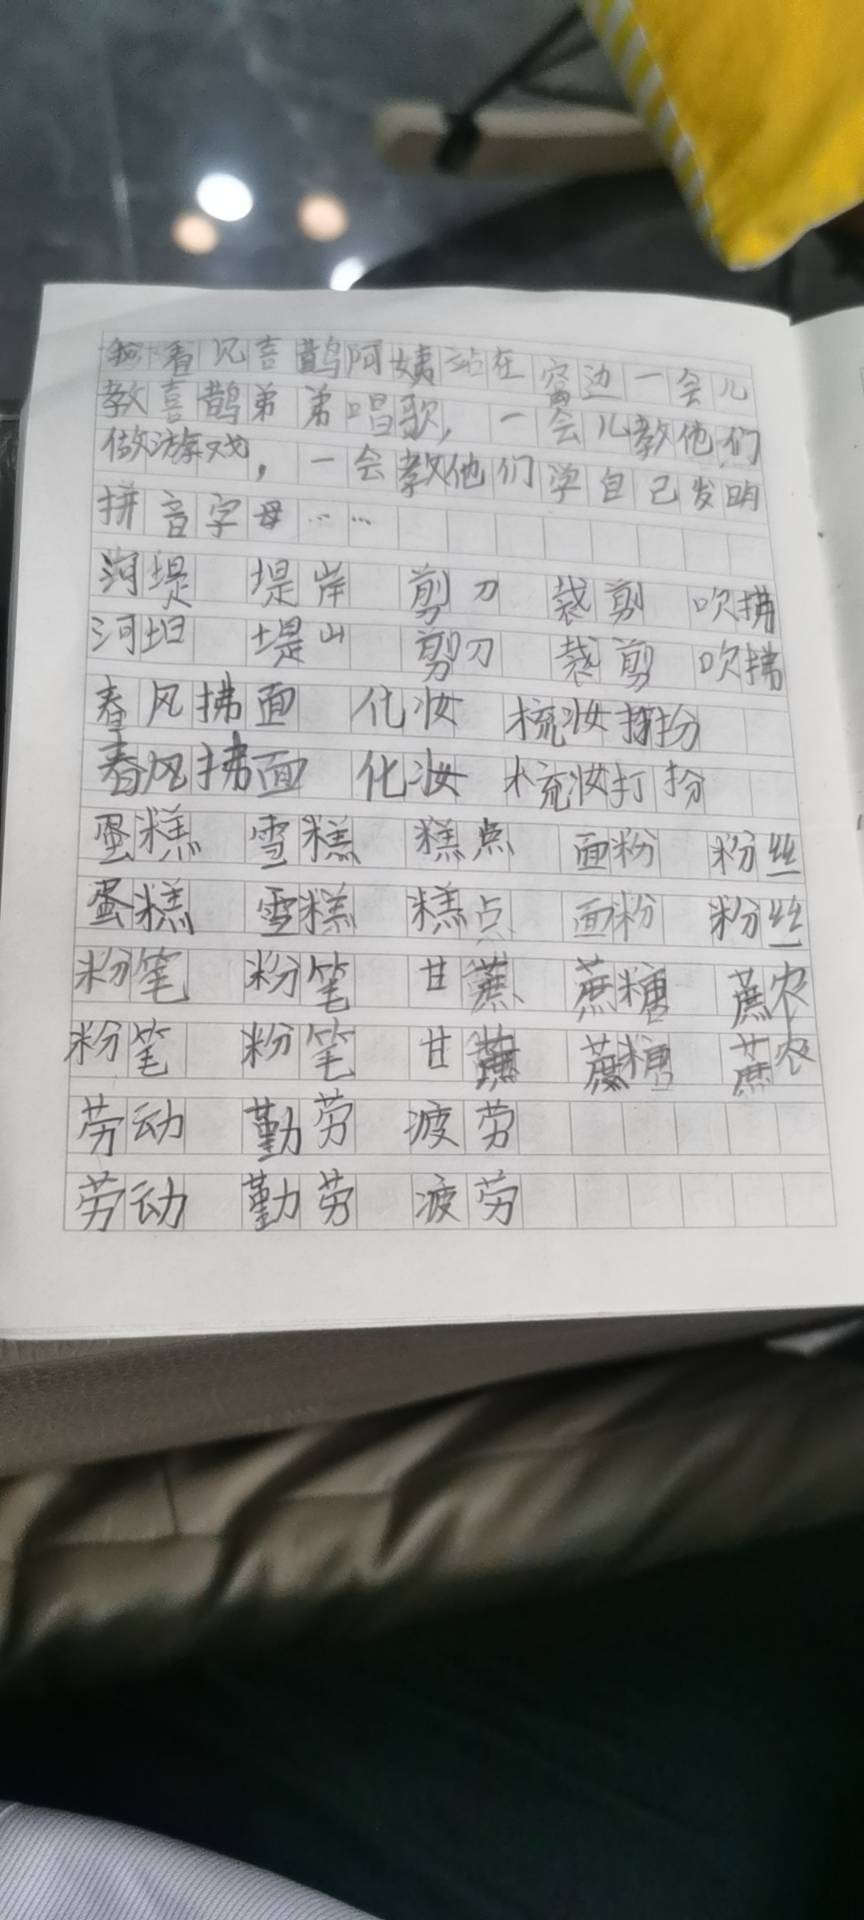 我看见喜鹊阿姨站在窝边一会儿
教喜鹊弟弟唱歌，一会儿教他们
做游戏，一会教他们学自己发明
拼音字母……
河堤 堤岸 剪刀 裁剪 吹拂
河坦 堤山 剪刀 裁剪 吹拂
春风拂面 化妆 梳妆打扮
春风拂面 化妆 梳妆打扮
蛋糕 雪糕 糕点 面粉 粉丝
蛋糕 雪糕 糕点 面粉 粉丝
粉笔 粉笔 甘蔗 蔗糖 蔗农
粉笔 粉笔 甘蔗 蔗糖 蔗农
劳动 勤劳 疲劳
劳动 勤劳 疲劳